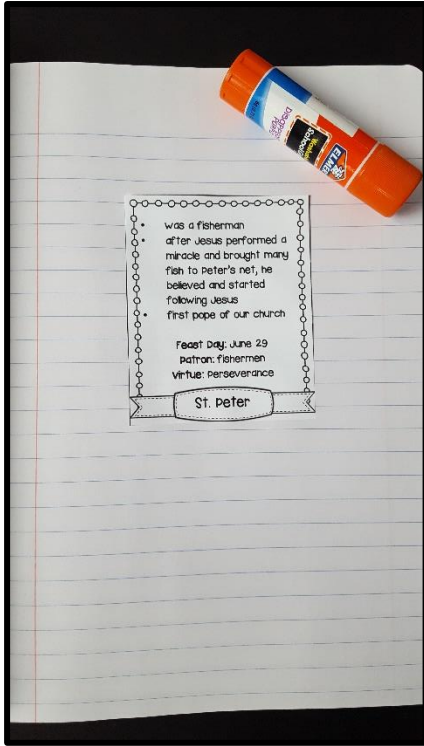 ELMER'S
School
Disappearing
Purple
• was a fisherman
• after Jesus performed a
miracle and brought many
fish to Peter's net, he
believed and started
following Jesus
• first pope of our church
Feast Day: June 29
Patron: fishermen
Virtue: Perseverance
St. Peter